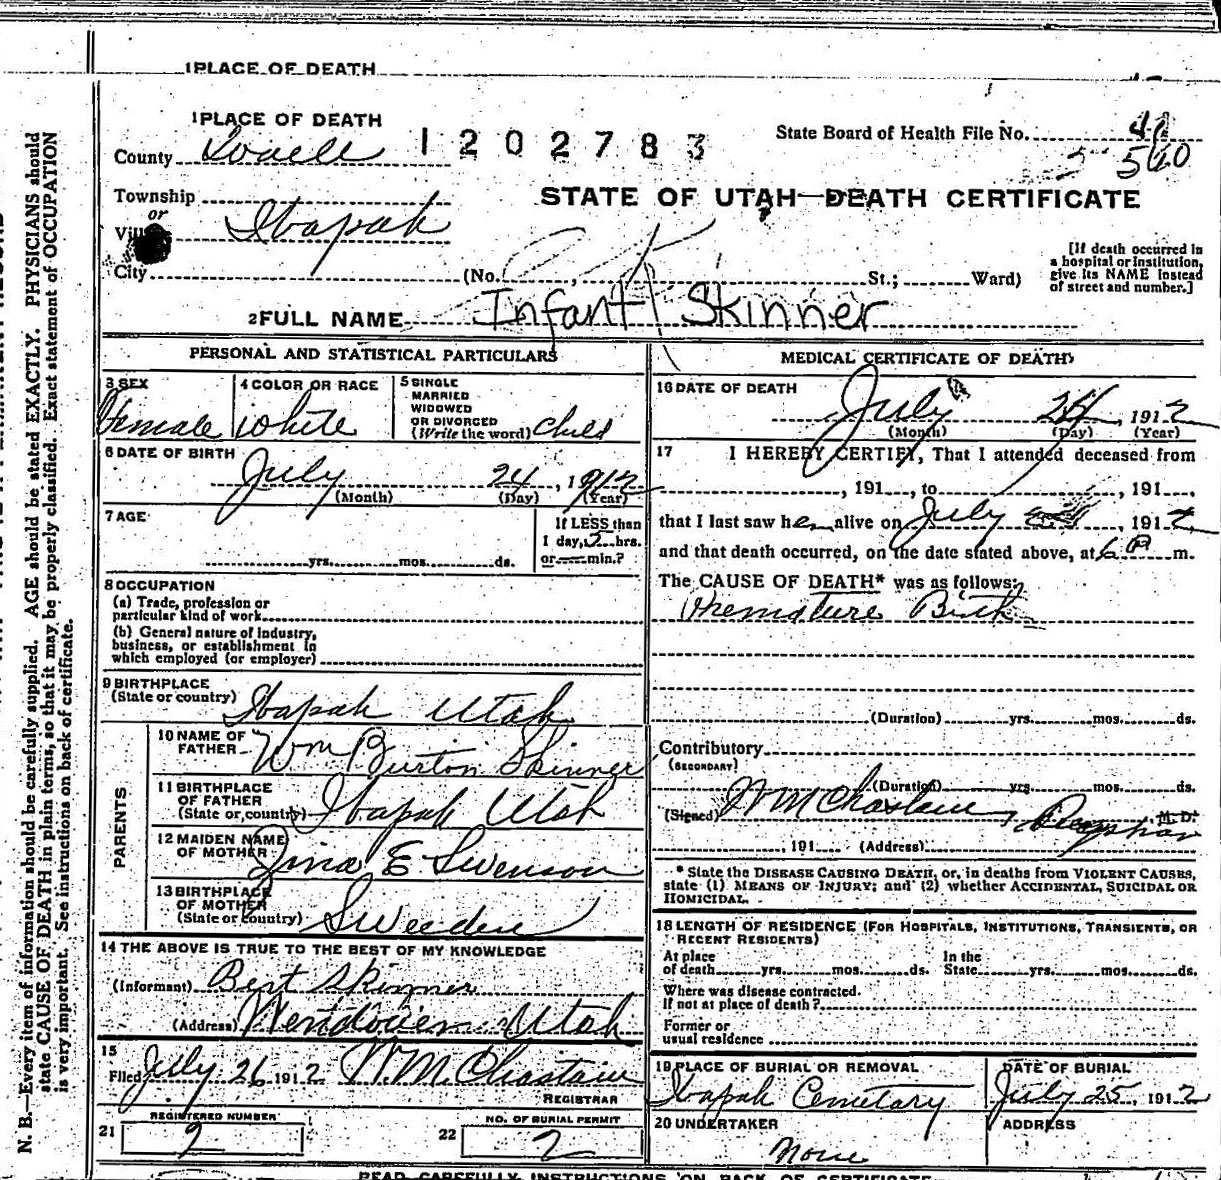 1 PLACE OF DEATH
1 PLACE OF DEATH
County Tooele
1202783
State Board of Health File No. 41
560
Township
or
Village Ibapah
STATE OF UTAH—DEATH CERTIFICATE
City (No. , St.; Ward)
[If death occurred in
a hospital or institution,
give its NAME instead
of street and number.]
2 FULL NAME Infant Skinner
PERSONAL AND STATISTICAL PARTICULARS
3 SEX
Female
4 COLOR OR RACE
white
5 SINGLE
MARRIED
WIDOWED
OR DIVORCED
(Write the word) child
6 DATE OF BIRTH
July 24, 1912
(Month) (Day) (Year)
7 AGE
yrs. mos. ds.
If LESS than
1 day, 2 hrs.
or min.?
8 OCCUPATION
(a) Trade, profession or
particular kind of work
(b) General nature of industry,
business, or establishment in
which employed (or employer)
9 BIRTHPLACE
(State or country) Ibapah Utah
PARENTS
10 NAME OF
FATHER Wm Burton Skinner
11 BIRTHPLACE
OF FATHER
(State or country) Ibapah Utah
12 MAIDEN NAME
OF MOTHER E Swenson
13 BIRTHPLACE
OF MOTHER
(State or country) Sweeden
14 THE ABOVE IS TRUE TO THE BEST OF MY KNOWLEDGE
(Informant) Bert Skinner
(Address) Wendover Utah
15
Filed July 26 1912 W.M. Chastain
REGISTRAR
REGISTERED NUMBER
21 2
NO. OF BURIAL PERMIT
22 2
MEDICAL CERTIFICATE OF DEATH
16 DATE OF DEATH
July 24, 1912
(Month) (Day) (Year)
17 I HEREBY CERTIFY, That I attended deceased from
, 191 , to , 191 ,
that I last saw her alive on July , 1912,
and that death occurred, on the date stated above, at 6 P m.
The CAUSE OF DEATH* was as follows:
Premature Birth
(Duration) yrs. mos. ds.
Contributory
(SECONDARY)
(Duration) yrs. mos. ds.
(Signed) W M Chastain, M.D.
, 191 (Address)
* State the DISEASE CAUSING DEATH, or, in deaths from VIOLENT CAUSES,
state (1) MEANS OF INJURY; and (2) whether ACCIDENTAL, SUICIDAL OR
HOMICIDAL.
18 LENGTH OF RESIDENCE (FOR HOSPITALS, INSTITUTIONS, TRANSIENTS, OR
RECENT RESIDENTS)
At place
of death yrs. mos. ds.
In the
State yrs. mos. ds.
Where was disease contracted.
If not at place of death?
Former or
usual residence
19 PLACE OF BURIAL OR REMOVAL
Ibapah Cemetary
DATE OF BURIAL
July 25, 1912
20 UNDERTAKER
None
ADDRESS
READ CAREFULLY INSTRUCTIONS ON BACK OF CERTIFICATE
N. B.—Every item of information should be carefully supplied. AGE should be stated EXACTLY. PHYSICIANS should
state CAUSE OF DEATH in plain terms, so that it may be properly classified. Exact statement of OCCUPATION
is very important. See instructions on back of certificate.